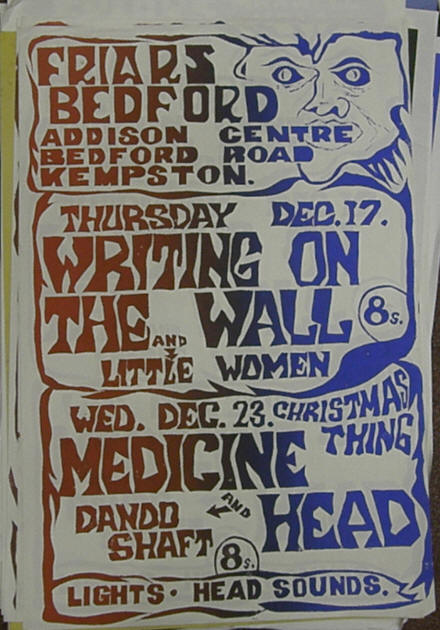 FRIARS
BEDFORD
ADDISON CENTRE
BEDFORD ROAD
KEMPSTON.
THURSDAY DEC.17.
WRITING ON
THE WALL 8s.
AND
LITTLE WOMEN
WED. DEC. 23. CHRISTMAS
THING
MEDICINE
HEAD
AND
DANDO
SHAFT
8s.
LIGHTS · HEAD SOUNDS.